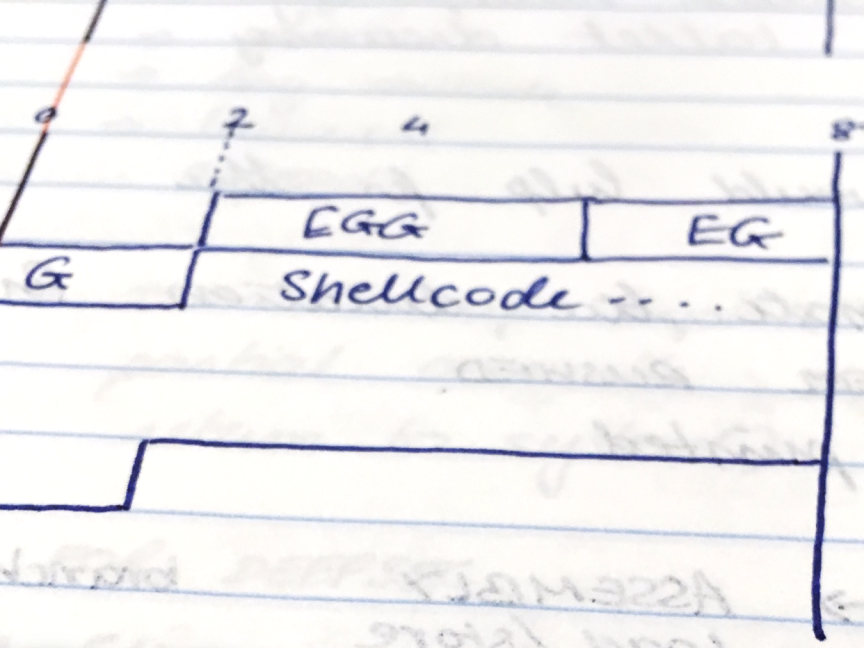 0 2 4 8
EGG EG
G Shellcode ....